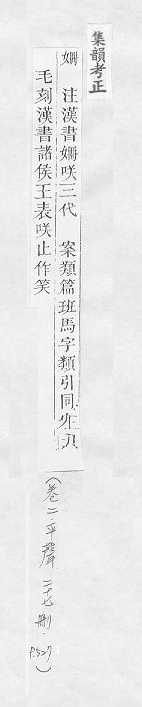 集韻考正
姍　注漢書姍咲三代　案類篇班馬字類引同
毛刻漢書諸侯王表咲止作笑
(卷二 平聲 二十七刪 P.527)